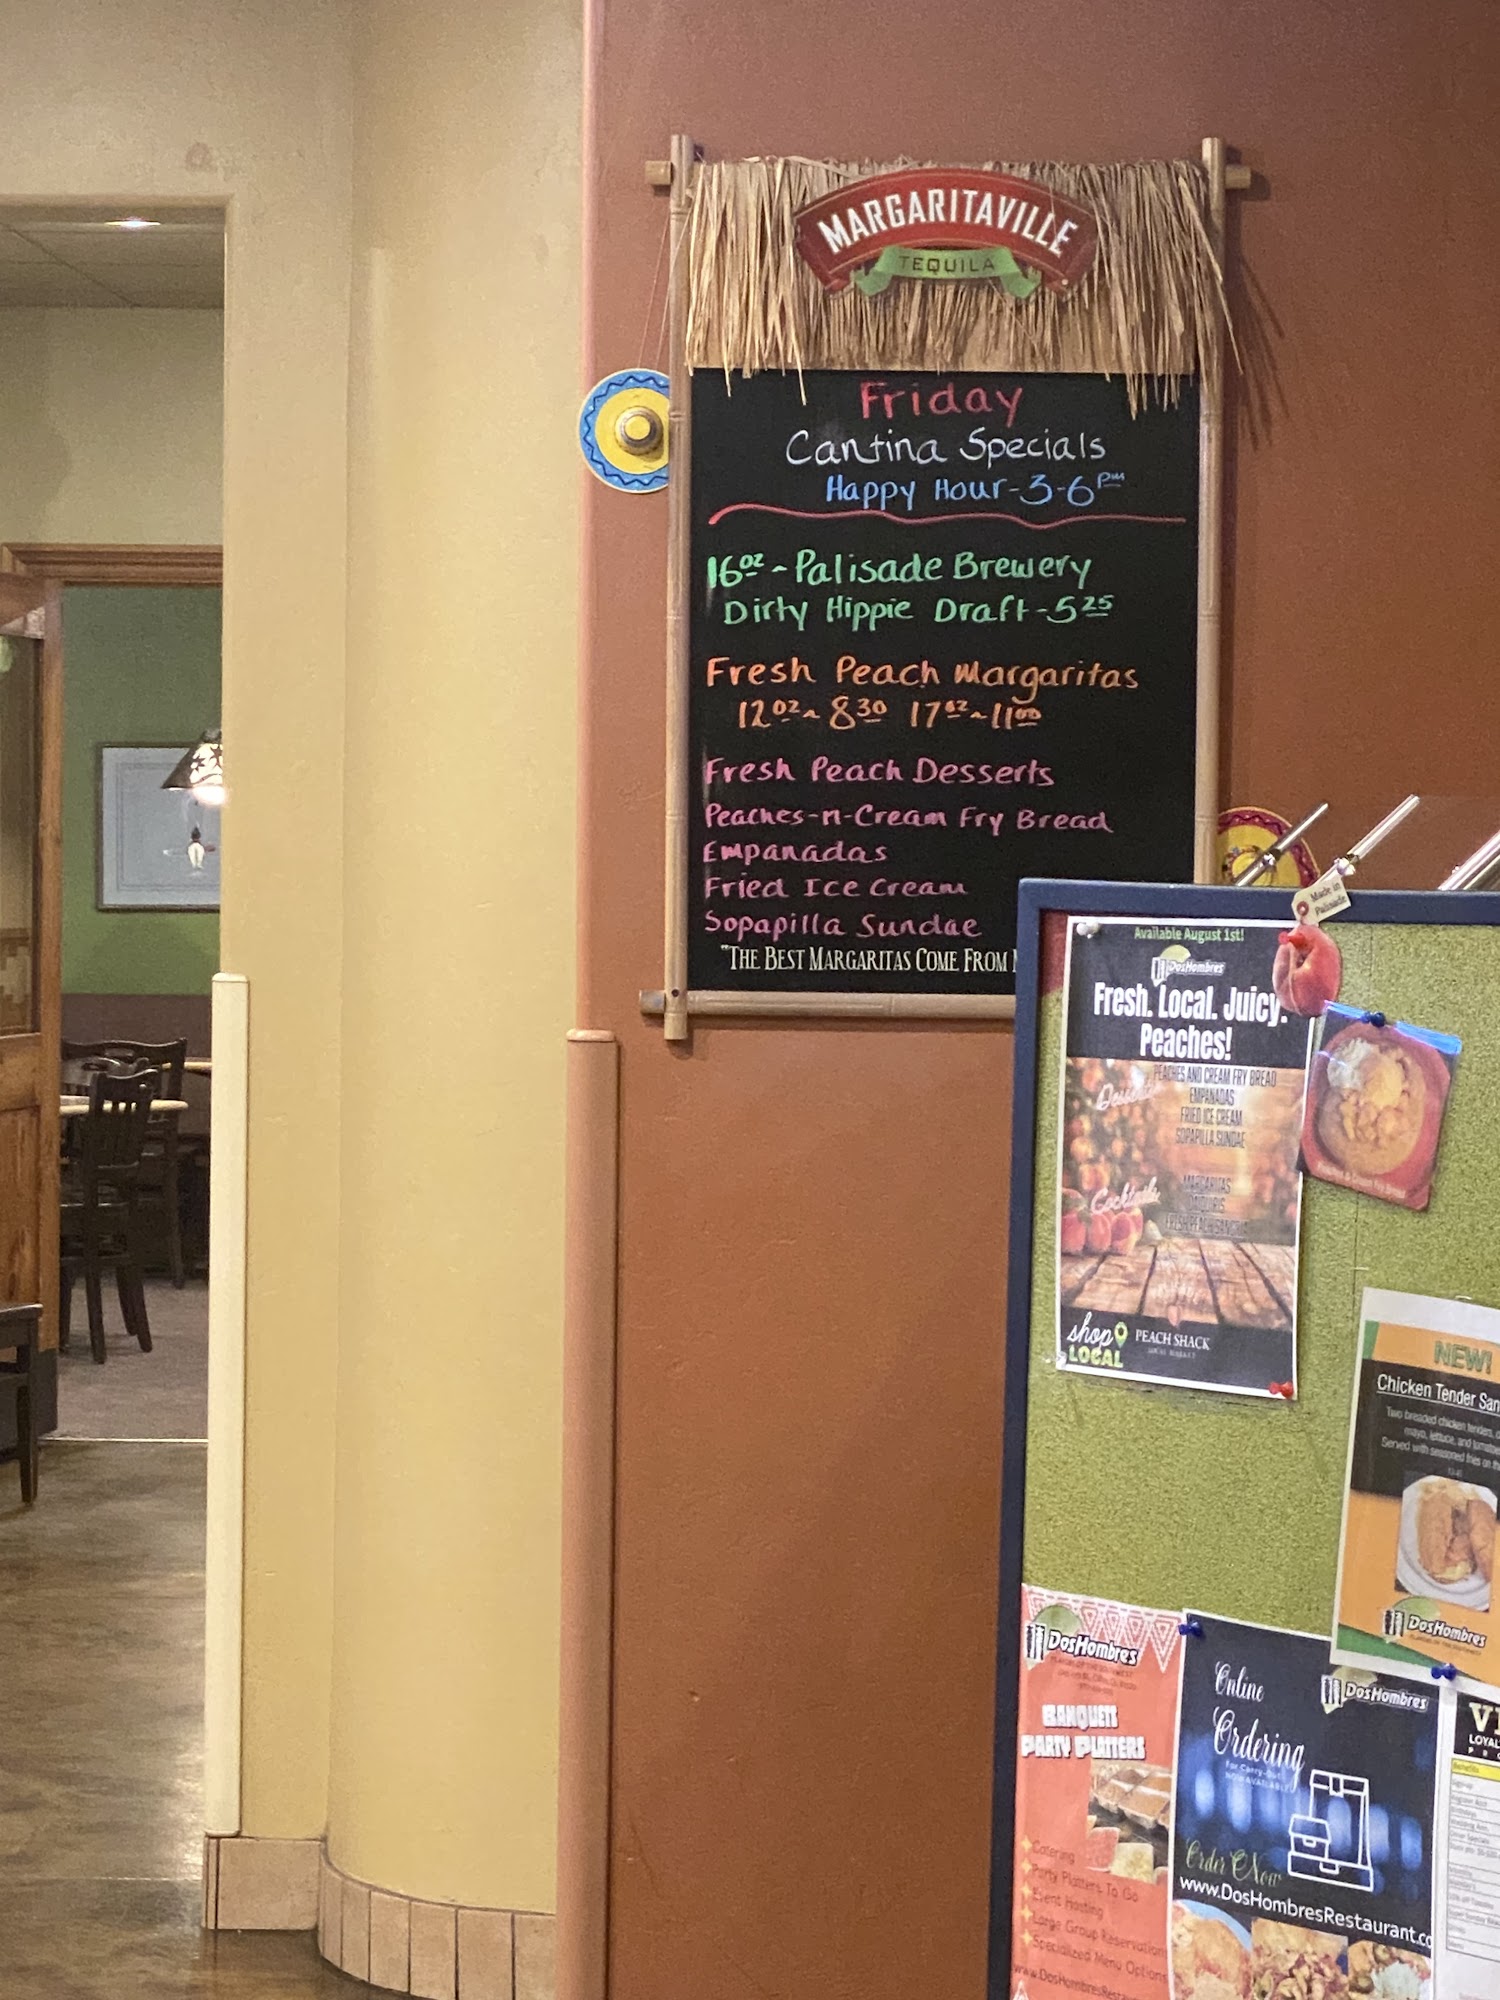 MARGARITAVILLE
TEQUILA
Friday
Cantina Specials
Happy Hour-3-6pm
16oz ~ Palisade Brewery
Dirty Hippie Draft-5 25
Fresh Peach Margaritas
12oz ~ 8 30 17oz ~ 11 00
Fresh Peach Desserts
Peaches-n-Cream Fry Bread
Empanadas
Fried Ice Cream
Sopapilla Sundae
"THE BEST MARGARITAS COME FROM
Made in
Palisade
Available August 1st!
DosHombres
Fresh. Local. Juicy.
Peaches!
PEACHES AND CREAM FRY BREAD
EMPANADAS
FRIED ICE CREAM
SOPAPILLA SUNDAE
Cocktails
MARGARITAS
FRESH PEACH SANGRIA
shop
LOCAL
PEACH SHACK
NEW!
Chicken Tender San
Two breaded chicken tenders,
mayo, lettuce, and
Served with seasoned fries on
DosHombres
DosHombres
BANQUETS
PARTY PLATTERS
Catering
Party Platters To Go
Event Hosting
Large Group Reservation
Specialized Menu Options
DosHombres
Online
Ordering
For Carry-out
NOW AVAILABLE
Order Now
www.DosHombresRestaurant.co
LOYAL
Benefits